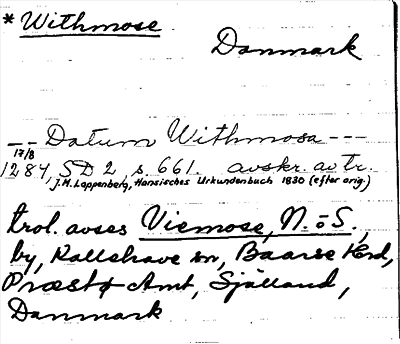 * Withmose.
Danmark
-- Datum Withmosa ---
17/8
1284, SD 2, s. 661. avskr. av tr.
J.M. Lappenberg, Hansisches Urkundenbuch 1830 (efter orig.)
trol. avses Viemose, N. o S.,
by, Kallehave sn, Baarse Hrd,
Præstø Amt, Själland,
Danmark